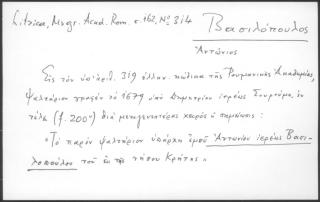 Litzica, Mvgr. Acad. Rom. σ. 162, Νο 314
Βασιλόπουλος
Ἀντώνιος
Εἰς τὸν ὑπ' ἀριθ. 319 ἑλλην. κώδικα τῆς Ρουμανικῆς Ἀκαδημίας,
ψαλτήριον γραφὲν τὸ 1679 ὑπὸ Δημητρίου ἱερέως Σουρούμα, ἐν
τέλει (f. 200ᵛ) διὰ μεταγενεστέρας χειρὸς ἡ σημείωσις :
«Τὸ παρὸν ψαλτήριον ὑπάρχει ἐμοῦ Ἀντωνίου ἱερέως Βασι-
λοπούλου τοῦ ἐκ τῆς νήσου Κρήτης»